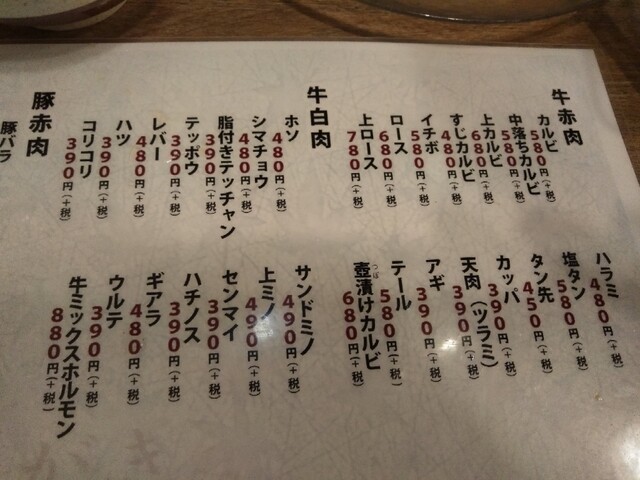 牛赤肉
カルビ
580円(+税)
中落ちカルビ
580円(+税)
上カルビ
680円(+税)
すじカルビ
480円(+税)
イチボ
580円(+税)
ロース
680円(+税)
上ロース
780円(+税)
ハラミ
480円(+税)
塩タン
580円(+税)
タン先
450円(+税)
カッパ
390円(+税)
天肉(ツラミ)
390円(+税)
アギ
390円(+税)
テール
580円(+税)
壺漬けカルビ
つぼ
680円(+税)
牛白肉
ホソ
480円(+税)
シマチョウ
480円(+税)
脂付きテッチャン
390円(+税)
テッポウ
390円(+税)
レバー
480円(+税)
ハツ
390円(+税)
コリコリ
390円(+税)
サンドミノ
490円(+税)
上ミノ
490円(+税)
センマイ
390円(+税)
ハチノス
390円(+税)
ギアラ
480円(+税)
ウルテ
390円(+税)
牛ミックスホルモン
880円(+税)
豚赤肉
豚バラ